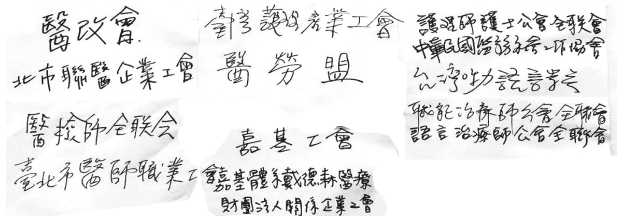 醫改會
北市聯醫企業工會
醫檢師全联会
臺北市醫師職業工會
護產業工會
醫勞盟
嘉基工會
嘉基體系戴德森醫療
財團法人關係企業工會
護理師護士公會全聯會
中華民國醫務社會工作協會
台灣聽語學會
職能治療師公會全聯會
語言治療師公會全聯會